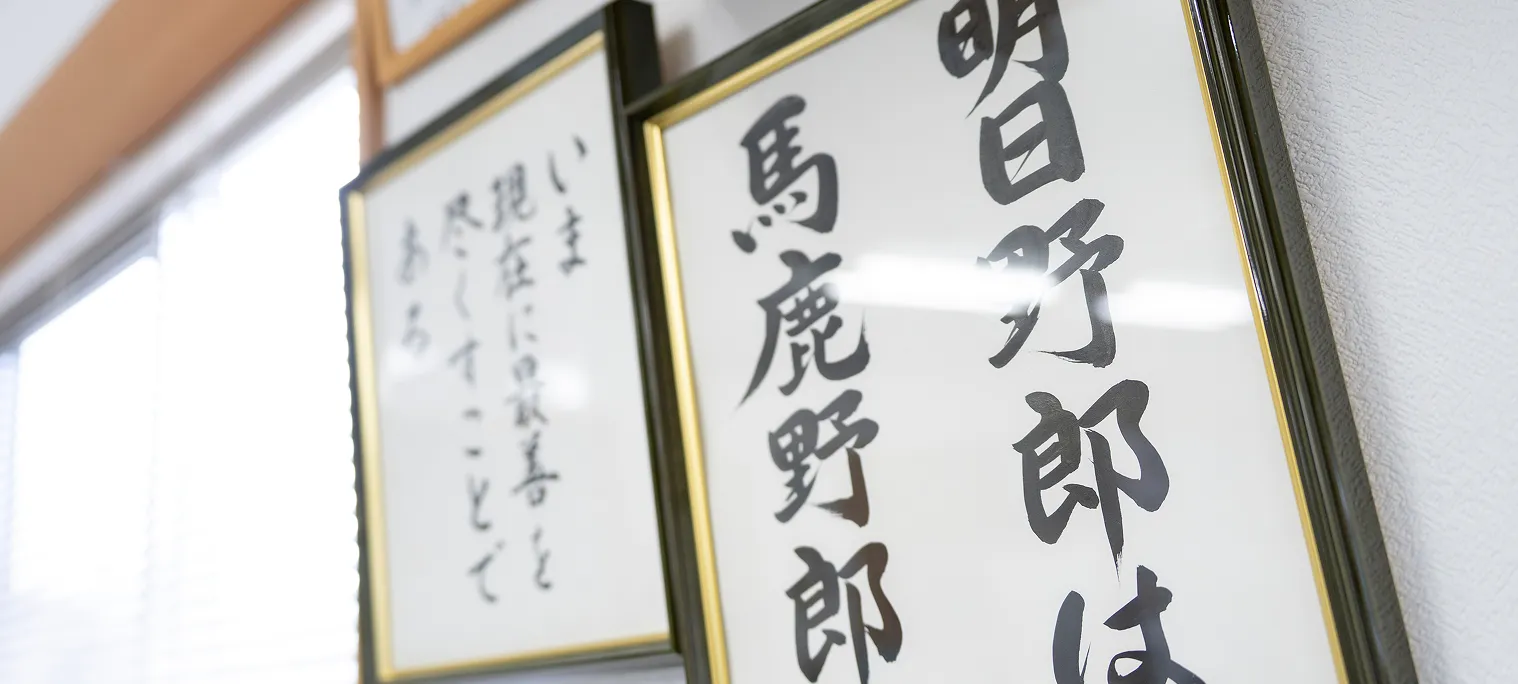 明日野郎は
馬鹿野郎
いま
現在に最善を
尽くすことで
ある